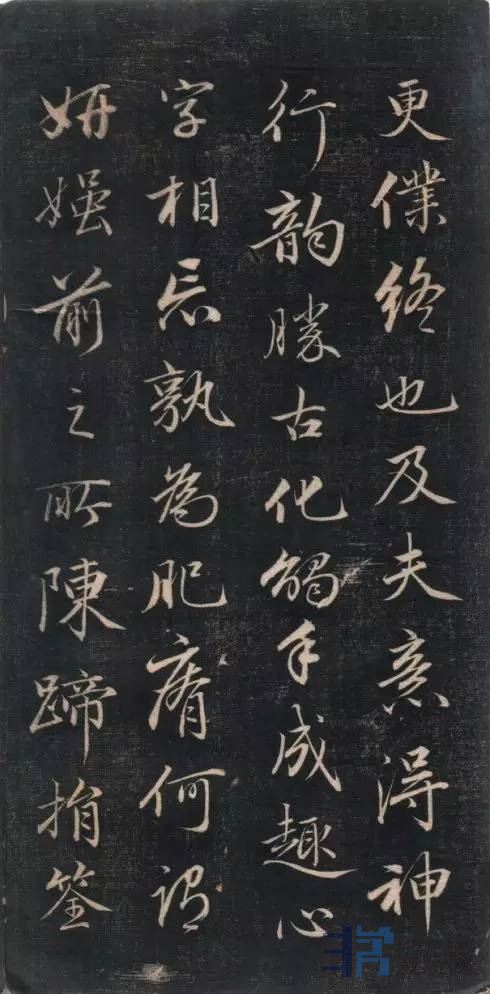 更仆終也及夫意得神
行韵勝古化觸手成趣心
字相忘孰為肥瘠何謂
妍媸前之所陳蹄捐筌